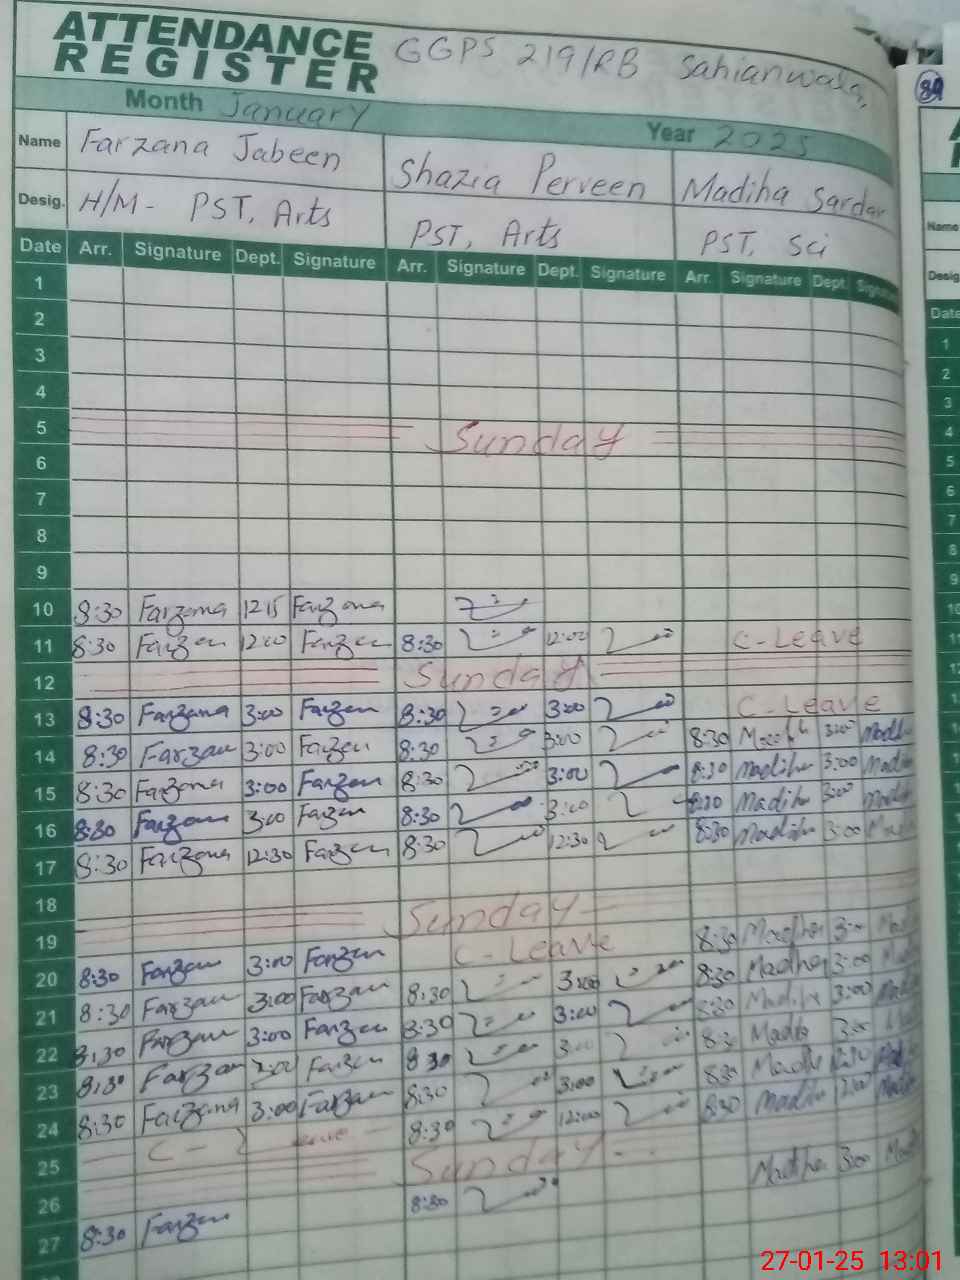 ATTENDANCE REGISTER GGPS 219/RB Sahianwala,
Month January Year 2025
Name Farzana Jabeen Shazia Perveen Madiha Sardar
Desig. H/M- PST, Arts PST, Arts PST, Sci
Date Arr. Signature Dept. Signature Arr. Signature Dept. Signature Arr. Signature Dept. Signature
1
2
3
4
5 Sunday
6
7
8
9
10 8:30 Farzana 12:15 Farzana
11 8:30 Farzan 12:00 Farzan 8:30 12:00 C-Leave
12 Sunday
13 8:30 Farzana 3:00 Farzan 8:30 3:00 C-Leave
14 8:30 Farzan 3:00 Farzan 8:30 3:00 8:30 3:00 Madih
15 8:30 Farzana 3:00 Farzan 8:30 3:00 8:30 Madiha 3:00 Madi
16 8:30 Farzan 3:00 Farzan 8:30 3:00 8:30 Madiha 3:00 Madi
17 8:30 Farzana 12:30 Farzan 8:30 12:30 8:30 Madiha 3:00
18
19 Sunday
20 8:30 Farzan 3:00 Farzan C-Leave 8:30 Madiha 3:00
21 8:30 Farzan 3:00 Farzan 8:30 3:00 8:30 Madiha 3:00
22 8:30 Farzan 3:00 Farzan 8:30 3:00 8:30 Madiha 3:00
23 8:30 Farzan 3:00 Farzan 8:30 Madiha 3:00
24 8:30 Farzana 3:00 Farzan 8:30 3:00 8:30 Madiha
25 C-Leave 8:30 12:00 8:30 Madiha
26 Sunday
27 8:30 Farzan 8:30 Madiha 3:00
89
Name
Desig
Date
1
2
3
4
5
6
7
8
9
27-01-25 13:01